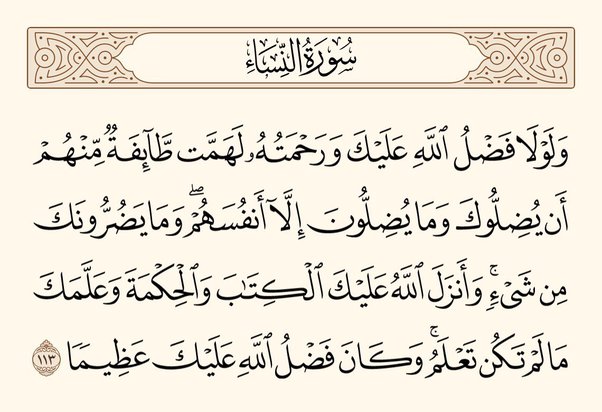 سُورَةُ النِّسَاءِ
وَلَوْلَا فَضْلُ ٱللَّهِ عَلَيْكَ وَرَحْمَتُهُۥ لَهَمَّت طَّآئِفَةٌ مِّنْهُمْ
أَن يُضِلُّوكَ وَمَا يُضِلُّونَ إِلَّآ أَنفُسَهُمْ ۖ وَمَا يَضُرُّونَكَ
مِن شَىْءٍ ۚ وَأَنزَلَ ٱللَّهُ عَلَيْكَ ٱلْكِتَـٰبَ وَٱلْحِكْمَةَ وَعَلَّمَكَ
مَا لَمْ تَكُن تَعْلَمُ ۚ وَكَانَ فَضْلُ ٱللَّهِ عَلَيْكَ عَظِيمًا ١١٣